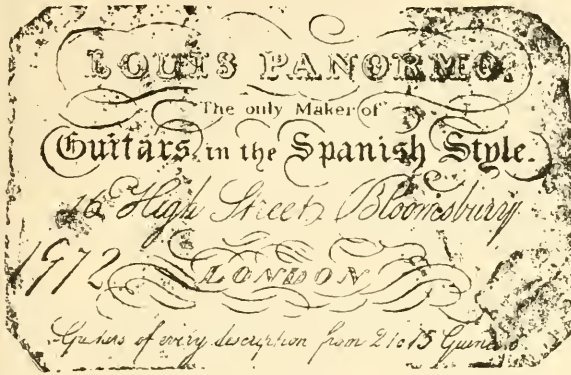 LOUIS PANORMO.
The only Maker of
Guitars in the Spanish Style.
46 High Street Bloomsbury
1972
LONDON
Guitars of every description from 2 to 15 Guineas